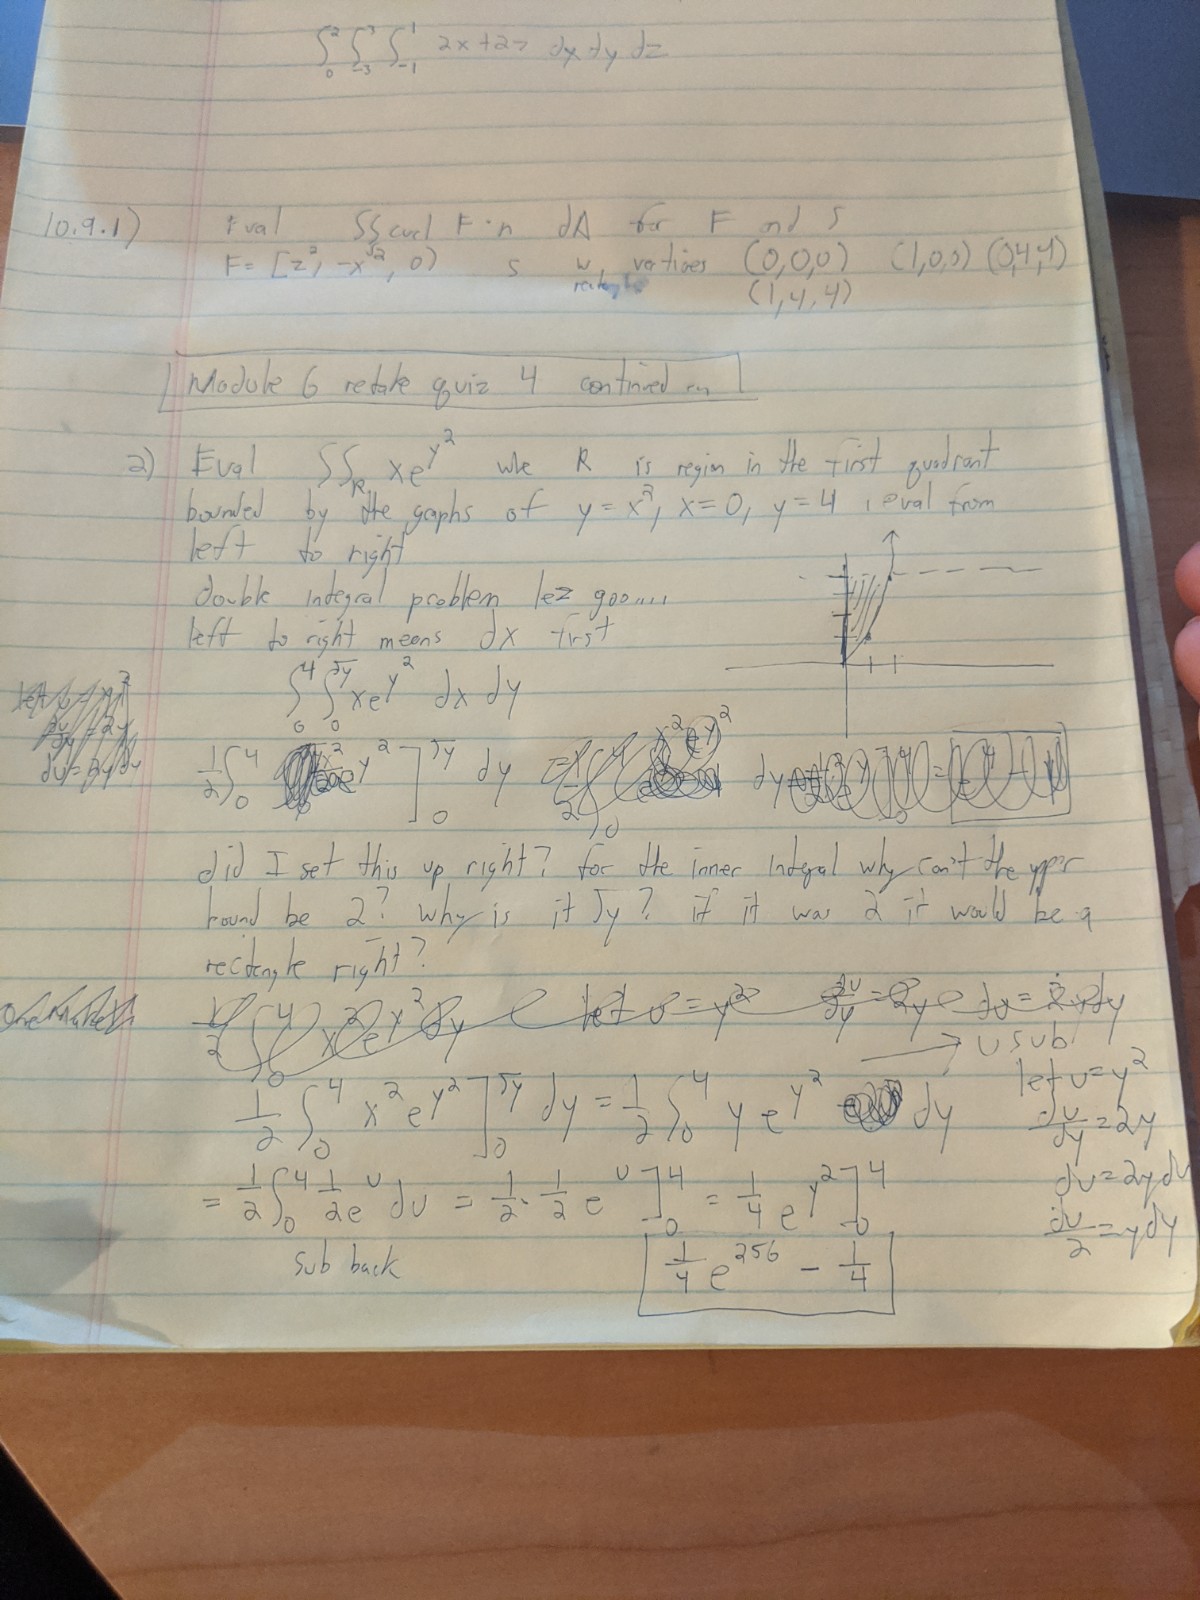 ∫₀² ∫₋₃³ ∫₋₁¹ 2x+2z dx dy dz
10.9.1) Eval ∫∫ₛ curl F·n dA for F and S
F= [z², -x², 0) S w, vertices (0,0,0) (1,0,0) (0,4,4)
rectangle (1,4,4)
Module 6 retake quiz 4 continued
2) Eval ∫∫_R xe^y² whe R is region in the first quadrant
bounded by the graphs of y = x², x=0, y=4, eval from
left to right
double integral problem lez goo.....
left to right means dx first
∫₀⁴ ∫₀^√y xe^y² dx dy
1/2 ∫₀⁴ e^y² ]₀^√y dy
did I set this up right? for the inner integral why can't the upper
bound be 2? Why is it √y? if it was 2 it would be a
rectangle right?
let u = y² du/dy = 2y du = 2y dy
→ U sub
1/2 ∫₀⁴ x² e^y² ]₀^√y dy = 1/2 ∫₀⁴ y e^y² dy
let u=y²
du/dy = 2y
du = 2y dy
du/2 = y dy
= 1/2 ∫₀⁴ 1/2 e^u du = 1/2 · 1/2 e^u ]₀⁴ = 1/4 e^y² ]₀⁴
sub back
1/4 e^256 - 1/4